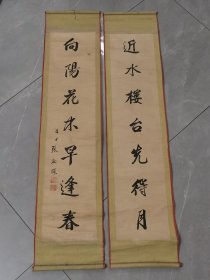 近水楼台先得月
向陽花木早逢春